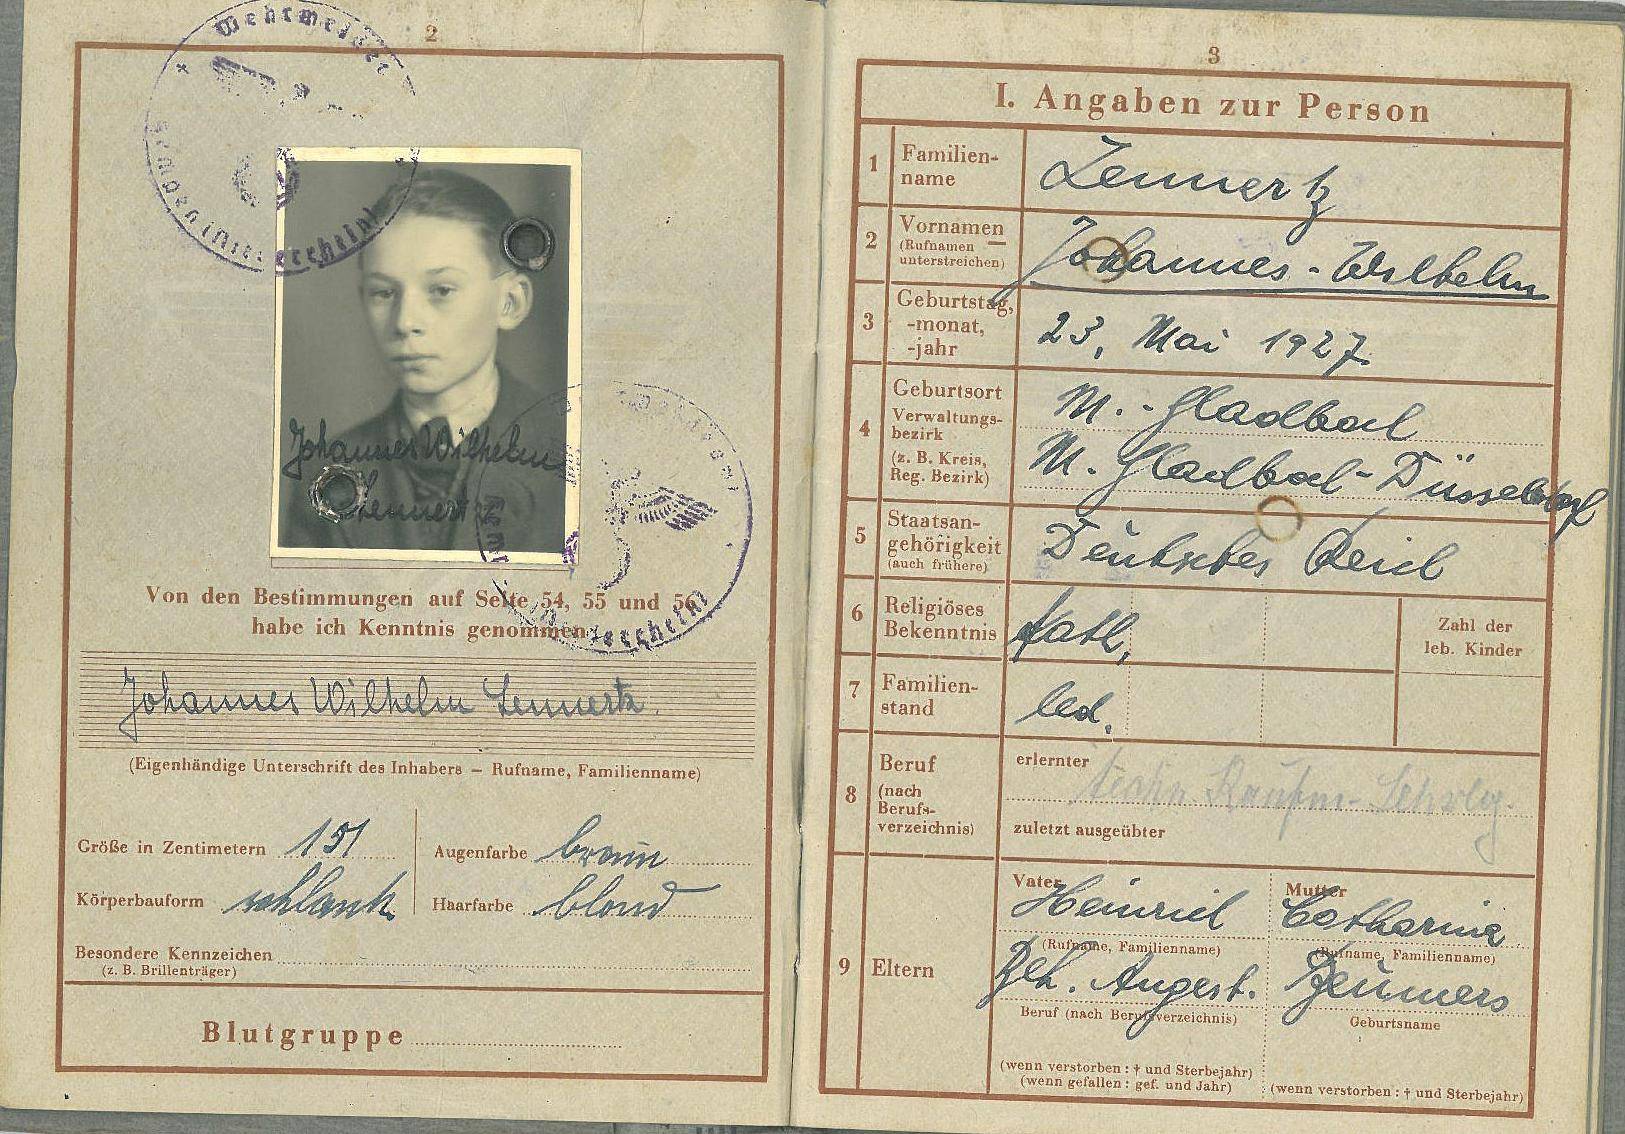 2
Wehrmeldeamt
(Niederrhein)
Johannes Wilhelm
Lennertz
(Niederrhein)
Von den Bestimmungen auf Seite 54, 55 und 56
habe ich Kenntnis genommen
Johannes Wilhelm Lennertz.
(Eigenhändige Unterschrift des Inhabers – Rufname, Familienname)
Größe in Zentimetern 151 Augenfarbe braun
Körperbauform schlank Haarfarbe blond
Besondere Kennzeichen
(z. B. Brillenträger)
Blutgruppe
3
I. Angaben zur Person
1 Familien-
name Lennertz
2 Vornamen
(Rufnamen
unterstreichen) Johannes-Wilhelm
3 Geburtstag,
-monat,
-jahr 23. Mai 1927.
4 Geburtsort M.-Gladbach
Verwaltungs-
bezirk
(z. B. Kreis,
Reg. Bezirk) M. Gladbach-Düsseldorf
5 Staatsan-
gehörigkeit
(auch frühere) Deutsches Reich
6 Religiöses
Bekenntnis kath.
Zahl der
leb. Kinder
7 Familien-
stand led.
8 Beruf
(nach
Berufs-
verzeichnis)
erlernter
techn. Kaufm.-
zuletzt ausgeübter
9 Eltern
Vater Heinrich Mutter Catharina
(Rufname, Familienname) (Rufname, Familienname)
Angest.
Beruf (nach Berufsverzeichnis) Geburtsname
(wenn verstorben: † und Sterbejahr)
(wenn gefallen: gef. und Jahr) (wenn verstorben: † und Sterbejahr)